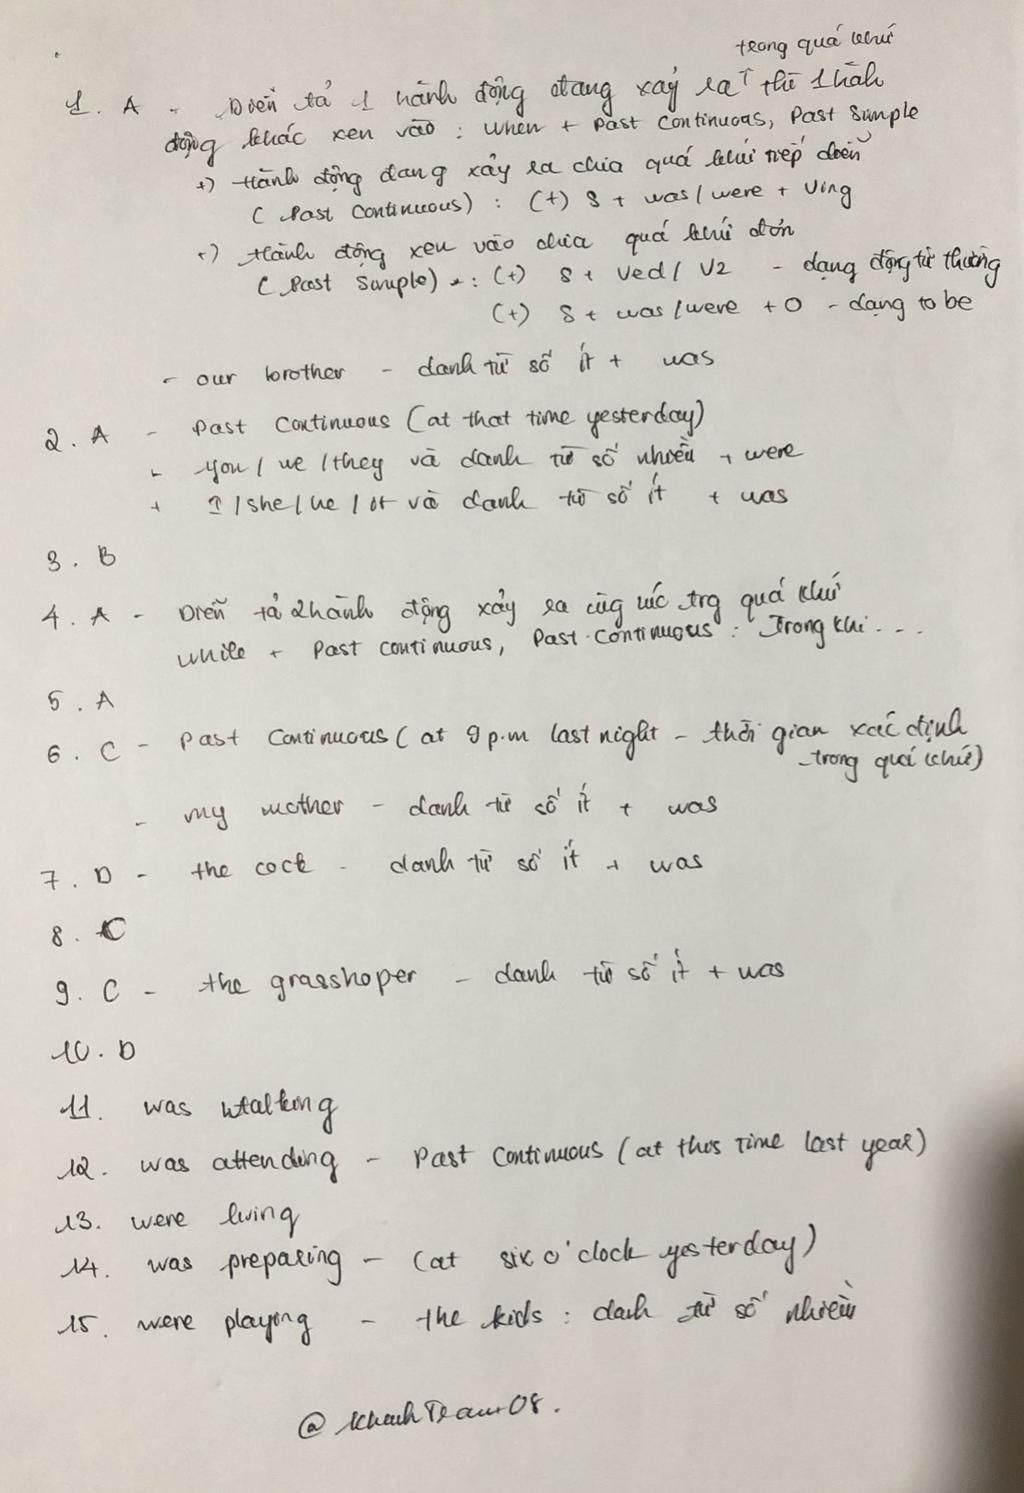 trong quá khứ
1. A - Diễn tả 1 hành động đang xảy ra thì 1 hành
động khác xen vào : When + Past Continuous, Past Simple
+) Hành động đang xảy ra chia quá khứ tiếp diễn
( Past Continuous) : (+) S + was / were + Ving
+) Hành động xen vào chia quá khứ đơn
( Past Simple) : (+) S + Ved / V2 - dạng động từ thường
(+) S + was / were + O - dạng to be
- our brother - danh từ số ít + was
2. A - Past Continuous (at that time yesterday)
- you / we / they và danh từ số nhiều + were
+ I / she / he / it và danh từ số ít + was
3. B
4. A - Diễn tả 2 hành động xảy ra cùg lúc trg quá khứ
while + Past continuous, Past Continuous : Trong khi ...
5. A
6. C - Past Continuous ( at 9 p.m last night - thời gian xác định
trong quá khứ)
- my mother - danh từ số ít + was
7. D - the cock - danh từ số ít + was
8. C
9. C - the grasshoper - danh từ số ít + was
10. D
11. was walking
12. was attending - Past Continuous (at this time last year)
13. were living
14. was preparing - (at six o'clock yesterday)
15. were playing - the kids : danh từ số nhiều